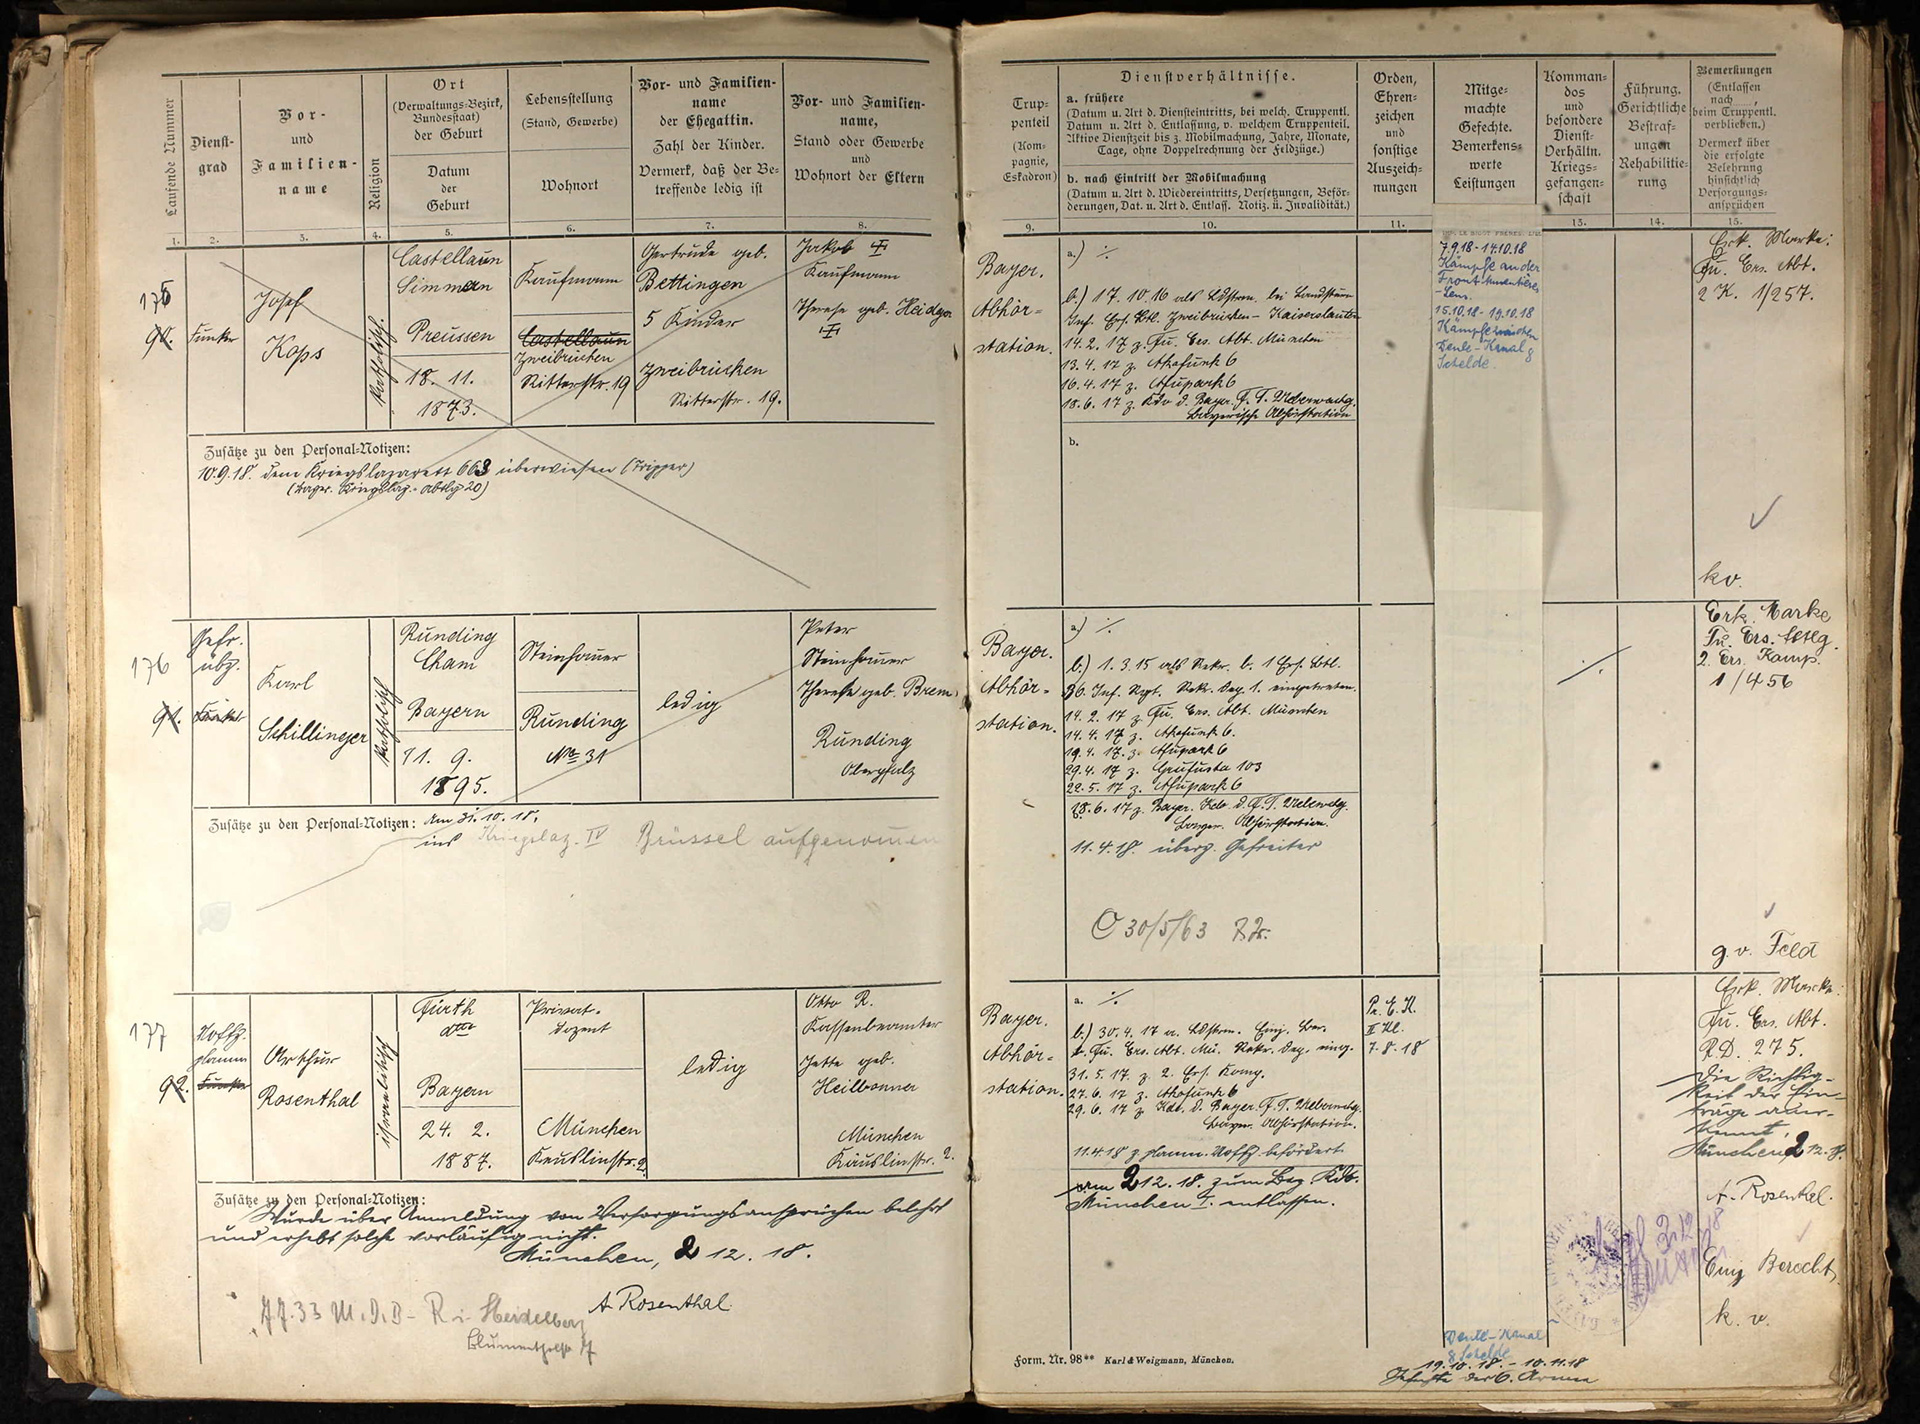 Laufende Nummer
Dienst-
grad
Vor-
und
Familien-
name
Religion
Ort
(Verwaltungs-Bezirk,
Bundesstaat)
der Geburt
Datum
der
Geburt
Lebensstellung
(Stand, Gewerbe)
Wohnort
Vor- und Familien-
name
der Ehegattin.
Zahl der Kinder.
Vermerk, daß der Be-
treffende ledig ist
Vor- und Familien-
name,
Stand oder Gewerbe
und
Wohnort der Eltern
1.
2.
3.
4.
5.
6.
7.
8.
175
90.
Funker
Josef
Kops
katholisch.
Castellaun
Simmern
Preussen
18. 11.
1873.
Kaufmann
Castellaun
Zweibrücken
Ritterstr. 19
Gertrude geb.
Bettingen
5 Kinder
Zweibrücken
Ritterstr. 19.
Jakob
Kaufmann
Therese geb. Heidger
Zusätze zu den Personal-Notizen:
10.9.18. dem Kriegslazarett 663 überwiesen (Tripper)
176
91.
Gefr.
übz.
Funker
Karl
Schillinger
katholisch
Runding
Cham
Bayern
11. 9.
1895.
Steinhauer
Runding
No 31
ledig
Peter
Steinhauer
Therese geb. Brem
Runding
Oberpfalz
Zusätze zu den Personal-Notizen: Am 31.10.18.
ins Kriegslaz. IV Brüssel aufgenommen
177
92.
Uoffz.
Funker
Arthur
Rosenthal
israelitisch
Fürth
dto
Bayern
24. 2.
1887.
Privat-
dozent
München
Keuslinstr. 2.
ledig
Otto R.
Kassenbeamter
Jette geb.
Heilbronner
München
Käuslinstr. 2.
Zusätze zu den Personal-Notizen:
Wurde über Anmeldung von Versorgungsansprüchen belehrt
und erhebt solche vorläufig nicht.
München, 2 12. 18.
A Rosenthal
Heidelberg
Trup-
penteil
(Kom-
pagnie,
Eskadron)
Dienstverhältnisse.
a. frühere
(Datum u. Art d. Diensteintritts, bei welch. Truppentl.
Datum u. Art d. Entlassung, v. welchem Truppenteil.
Aktive Dienstzeit bis z. Mobilmachung, Jahre, Monate,
Tage, ohne Doppelrechnung der Feldzüge.)
b. nach Eintritt der Mobilmachung
(Datum u. Art d. Wiedereintritts, Versetzungen, Beför-
derungen, Dat. u. Art d. Entlass. Notiz. ü. Invalidität.)
Orden,
Ehren-
zeichen
und
sonstige
Auszeich-
nungen
Mitge-
machte
Gefechte.
Bemerkens-
werte
Leistungen
Komman-
dos
und
besondere
Dienst-
Verhältn.
Kriegs-
gefangen-
schaft
Führung.
Gerichtliche
Bestraf-
ungen
Rehabilitie-
rung
Bemerkungen
(Entlassen
nach
beim Truppentl.
verblieben.)
Vermerk über
die erfolgte
Belehrung
hinsichtlich
Versorgungs-
ansprüchen
9.
10.
11.
13.
14.
15.
Bayer.
Abhör-
station.
a.) ./.
b.) 17. 10. 16 als Ldstrm. bei Landsturm
Inf. Ers. Btl. Zweibrücken - Kaiserslautern
14. 2. 17 z. Fu. Ers. Abt. München
13. 4. 17 z. Akofunk 6
16. 4. 17 z. Afupark 6
18. 6. 17 z. Kdo d. Bayr. F. T. Ueberwachg.
Bayerische Abhörstation
b.
7.9.18 - 14.10.18
Kämpfe an der
Front Armentières
- Lens.
15.10.18 - 19.10.18
Kämpfe zwischen
Deule-Kanal &
Schelde.
Erk. Marke:
Fu. Ers. Abt.
2 K. 1/257.
kv.
Bayer.
Abhör-
station.
a) ./.
b.) 1. 3. 15 als Rekr. b. 1 Ers. Btl.
Inf. Rgt. Rekr. Dep. 1. eingetreten.
14. 2. 17 z. Fu. Ers. Abt. München
14. 4. 17 z. Akofunk 6.
19. 4. 17. z. Afupark 6
29. 4. 17 z. Grufusta 103
22. 5. 17 z. Afupark 6
18. 6. 17 z. Bayer. Kdo. d. F. T. Ueberwchg.
Bayer. Abhörstation.
11. 4. 18. überz. Gefreiter
30/5/63
./.
Erk. Marke
Fu. Ers. Abtlg.
2. Ers. Komp.
1/456
g. v. Feld
Bayer.
Abhör-
station.
a. ./.
b.) 30. 4. 17 a. Ldstrm. Einj. Ber.
b. Fu. Ers. Abt. Mü. Rekr. Dep. eing.
31. 5. 17. z. 2. Ers. Komp.
27. 6. 17 z. Akofunk 6
29. 6. 17 z. Kdo. d. Bayer. F. T. Ueberwchg.
Bayer. Abhörstation.
11.4.18 z. planm. Uoffz. befördert.
am 2 12. 18. zum Bez Kdo.
München I. entlassen.
Pr. E. K.
II Kl.
7. 8. 18
Erk. Marke:
Fu. Ers. Abt.
R.D. 275.
Die Richtig-
keit der Ein-
träge aner-
kannt.
München, 2 12. 18.
A. Rosenthal.
Einj Berecht.
k. v.
Deule-Kanal
& Schelde
19. 10. 18. - 10. 11. 18
Gefechte der 6. Armee
Form. Nr. 98** Karl & Weigmann, München.